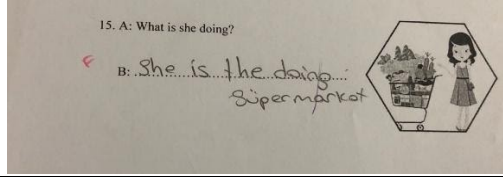 15. A: What is she doing?
F B: She is the doing
Süpermarkot